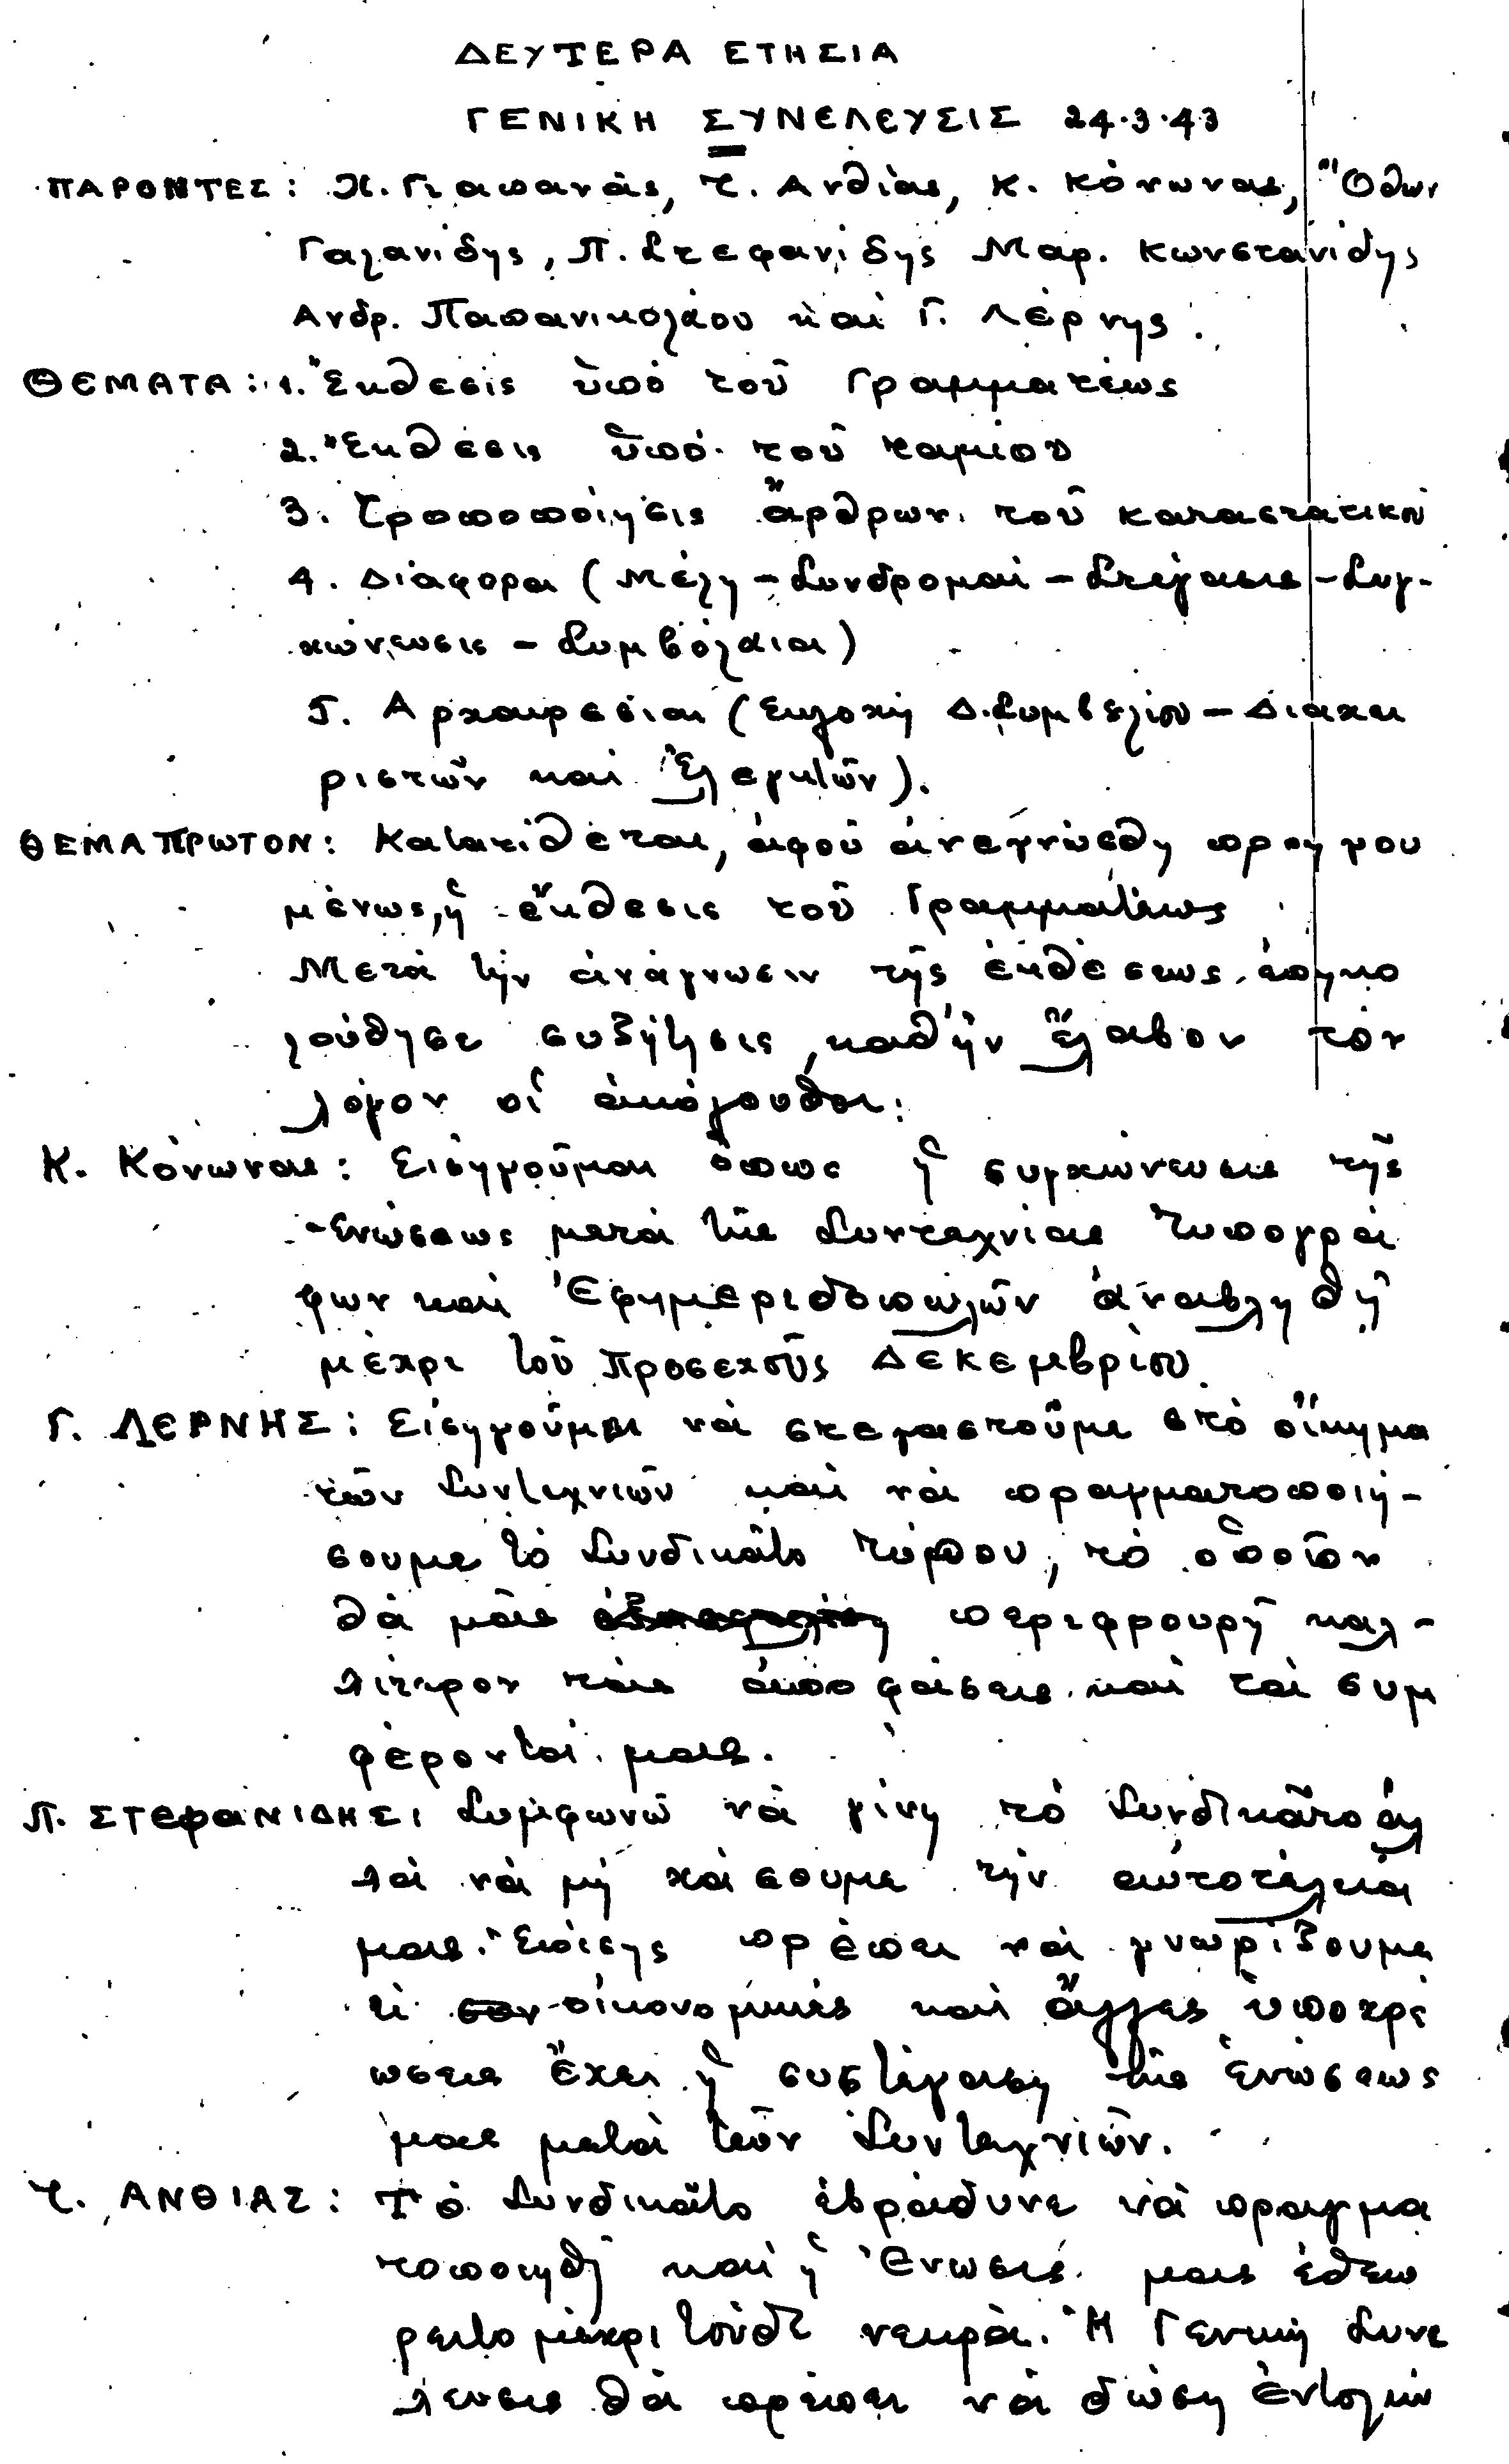 ΔΕΥΤΕΡΑ ΕΤΗΣΙΑ
ΓΕΝΙΚΗ ΣΥΝΕΛΕΥΣΙΣ 24.3.43
ΠΑΡΟΝΤΕΣ: Χ. Γιαπανάς, Τ. Ανθίας, Κ. Κόνωνας, Ὄθων
Γαλανίδης, Π. Στεφανίδης Μαρ. Κωνσταντινίδης
Ανδρ. Παπανικολάου καί Γ. Λέρνης.
ΘΕΜΑΤΑ: 1. Ἔκθεσις ὑπό τοῦ Γραμματέως
2. Ἔκθεσις ὑπό τοῦ ταμίου
3. Τροποποίησις ἄρθρων τοῦ καταστατικοῦ
4. Διάφορα (Μέλη - Συνδρομαί - Στέγασις - Συγ-
χώνευσις - Συμβόλαια)
5. Αρχαιρεσίαι (Εκλογή Δ. Συμβουλίου - Διαχει
ριστῶν καί Ἐλεγκτῶν).
ΘΕΜΑ ΠΡΩΤΟΝ: Κατατίθεται, ἀφοῦ ἀνεγνώσθη προηγου
μένως, ἡ ἔκθεσις τοῦ Γραμματέως
Μετά τήν ἀνάγνωσιν τῆς ἐκθέσεως ἐπηκο
λούθησε συζήτησις, καθ' ἥν ἔλαβον τόν
λόγον οἱ ἀκόλουθοι:
Κ. Κόνωνας: Εἰσηγοῦμαι ὅπως ἡ συγχώνευσις τῆς
Ενώσεως μετά τῆς Συντεχνίας Τυπογρά
φων καί Ἐφημεριδοπωλῶν ἀναβληθῇ
μέχρι τοῦ προσεχοῦς Δεκεμβρίου.
Γ. ΛΕΡΝΗΣ: Εἰσηγοῦμαι νά στεγαστοῦμε στό οἴκημα
τῶν Συντεχνιῶν καί νά πραγματοποιή-
σουμε τό Συνδικᾶτο τύπου, τό ὁποῖον
θά μᾶς περιφρουρῇ καλ-
λίτερον τάς ἀποφάσεις καί τά συμ
φέροντά μας.
Π. ΣΤΕΦΑΝΙΔΗΣ: Συμφωνῶ νά γίνῃ τό Συνδικᾶτο ἀλ
λά νά μή χάσουμε τήν αὐτοτέλεια
μας. Ἐπίσης πρέπει νά γνωρίζουμε
τί οἰκονομικές καί ἄλλες ὑποχρε
ώσεις ἔχει ἡ συστέγαση τῆς Ἑνώσεως
μας μετά τῶν Συντεχνιῶν.
Τ. ΑΝΘΙΑΣ: Τό Συνδικᾶτο ἐβράδυνε νά πραγμα
τοποιηθῇ καί ἡ Ἕνωσις μας ἐθεω
ρεῖτο μέχρι τοῦδε νεκρά. Ἡ Γενική Συνέ
λευσις θά πρέπει νά δώσῃ ἐντολήν